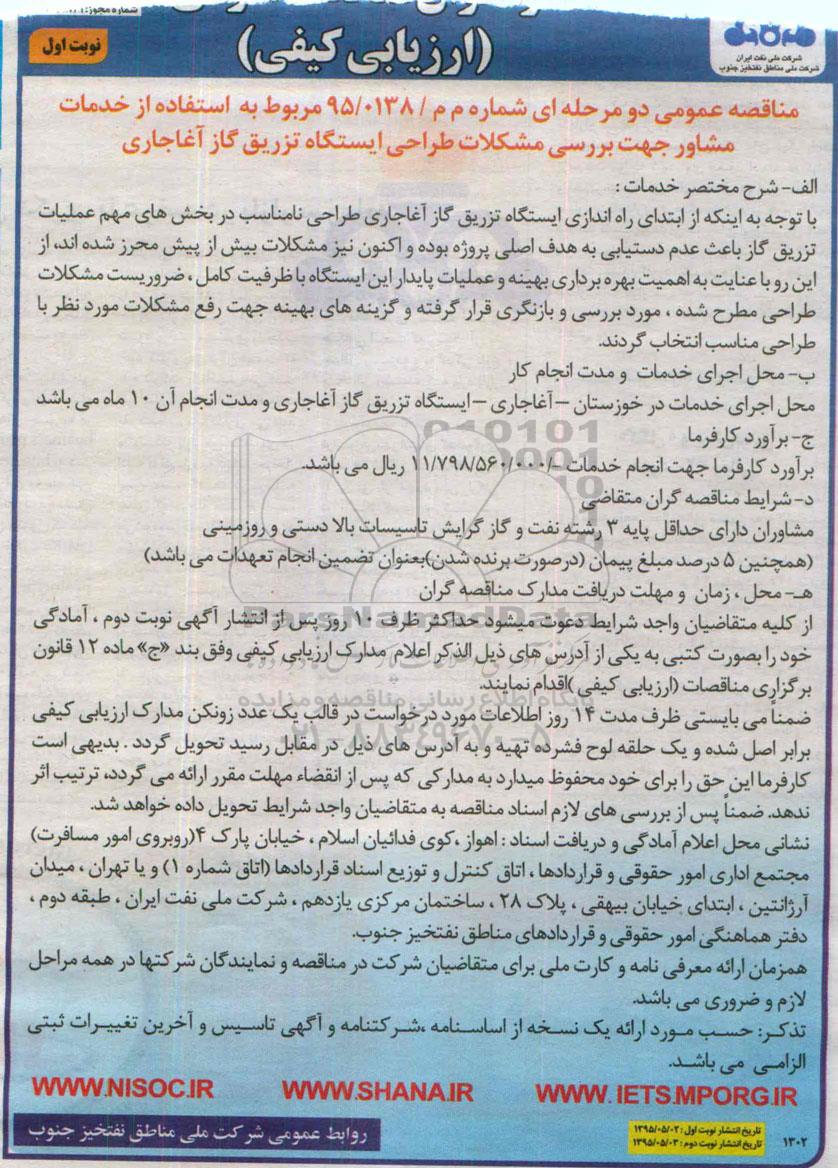 شماره مجوز:
نوبت اول
(ارزیابی کیفی)
شرکت ملی نفت ایران
شرکت ملی مناطق نفتخیز جنوب
مناقصه عمومی دو مرحله ای شماره م م / ۹۵/۰۱۳۸ مربوط به استفاده از خدمات
مشاور جهت بررسی مشکلات طراحی ایستگاه تزریق گاز آغاجاری
الف- شرح مختصر خدمات :
با توجه به اینکه از ابتدای راه اندازی ایستگاه تزریق گاز آغاجاری طراحی نامناسب در بخش های مهم عملیات
تزریق گاز باعث عدم دستیابی به هدف اصلی پروژه بوده و اکنون نیز مشکلات بیش از پیش محرز شده اند، از
این رو با عنایت به اهمیت بهره برداری بهینه و عملیات پایدار این ایستگاه با ظرفیت کامل ، ضروریست مشکلات
طراحی مطرح شده ، مورد بررسی و بازنگری قرار گرفته و گزینه های بهینه جهت رفع مشکلات مورد نظر با
طراحی مناسب انتخاب گردند.
ب- محل اجرای خدمات و مدت انجام کار
محل اجرای خدمات در خوزستان –آغاجاری –ایستگاه تزریق گاز آغاجاری و مدت انجام آن ۱۰ ماه می باشد
ج- برآورد کارفرما
برآورد کارفرما جهت انجام خدمات -/۱۱/۷۹۸/۵۶۰/۰۰۰ ریال می باشد.
د- شرایط مناقصه گران متقاضی
مشاوران دارای حداقل پایه ۳ رشته نفت و گاز گرایش تاسیسات بالا دستی و روزمینی
(همچنین ۵ درصد مبلغ پیمان (درصورت برنده شدن)بعنوان تضمین انجام تعهدات می باشد)
هـ- محل ، زمان و مهلت دریافت مدارک مناقصه گران
از کلیه متقاضیان واجد شرایط دعوت میشود حداکثر ظرف ۱۰ روز پس از انتشار آگهی نوبت دوم ، آمادگی
خود را بصورت کتبی به یکی از آدرس های ذیل الذکر اعلام مدارک ارزیابی کیفی وفق بند «ج» ماده ۱۲ قانون
برگزاری مناقصات (ارزیابی کیفی )اقدام نمایند.
ضمناً می بایستی ظرف مدت ۱۴ روز اطلاعات مورد درخواست در قالب یک عدد زونکن مدارک ارزیابی کیفی
برابر اصل شده و یک حلقه لوح فشرده تهیه و به آدرس های ذیل در مقابل رسید تحویل گردد . بدیهی است
کارفرما این حق را برای خود محفوظ میدارد به مدارکی که پس از انقضاء مهلت مقرر ارائه می گردد، ترتیب اثر
ندهد. ضمناً پس از بررسی های لازم اسناد مناقصه به متقاضیان واجد شرایط تحویل داده خواهد شد.
نشانی محل اعلام آمادگی و دریافت اسناد : اهواز ،کوی فدائیان اسلام ، خیابان پارک ۴(روبروی امور مسافرت)
مجتمع اداری امور حقوقی و قراردادها ، اتاق کنترل و توزیع اسناد قراردادها (اتاق شماره ۱) و یا تهران ، میدان
آرژانتین ، ابتدای خیابان بیهقی ، پلاک ۲۸ ، ساختمان مرکزی یازدهم ، شرکت ملی نفت ایران ، طبقه دوم ،
دفتر هماهنگی امور حقوقی و قراردادهای مناطق نفتخیز جنوب.
همزمان ارائه معرفی نامه و کارت ملی برای متقاضیان شرکت در مناقصه و نمایندگان شرکتها در همه مراحل
لازم و ضروری می باشد.
تذکر: حسب مورد ارائه یک نسخه از اساسنامه ،شرکتنامه و آگهی تاسیس و آخرین تغییرات ثبتی
الزامی می باشد.
WWW.NISOC.IR WWW.SHANA.IR WWW. IETS.MPORG.IR
تاریخ انتشار نوبت اول : ۱۳۹۵/۰۵/۰۲
تاریخ انتشار نوبت دوم : ۱۳۹۵/۰۵/۰۳
۱۳۰۲
روابط عمومی شرکت ملی مناطق نفتخیز جنوب
ParsNamadData
پایگاه اطلاع رسانی مناقصه و مزایده
۰۲۱-۸۸۳۴۹۶۷۰-۵